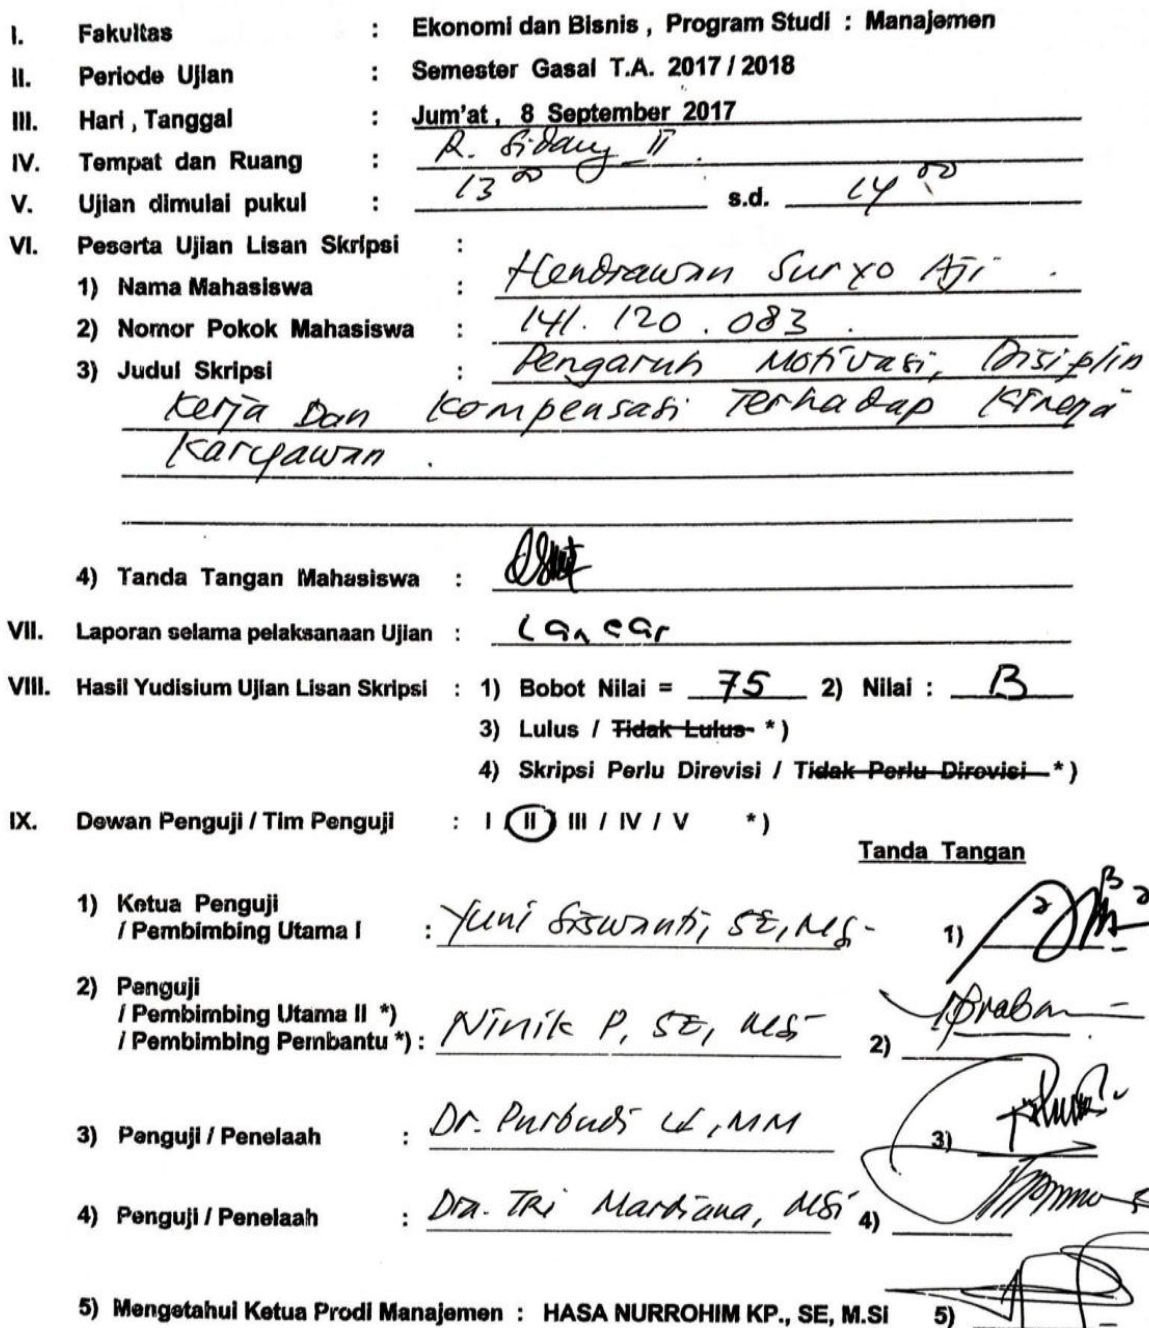 I. Fakultas : Ekonomi dan Bisnis , Program Studi : Manajemen
II. Periode Ujian : Semester Gasal T.A. 2017 / 2018
III. Hari , Tanggal : Jum'at , 8 September 2017
IV. Tempat dan Ruang : R. Sidang II .
V. Ujian dimulai pukul : 13 00 s.d. 14 00
VI. Peserta Ujian Lisan Skripsi :
1) Nama Mahasiswa : Hendrawan Suryo Aji .
2) Nomor Pokok Mahasiswa : 141. 120 . 083 .
3) Judul Skripsi : Pengaruh Motivasi, Disiplin
Kerja Dan Kompensasi Terhadap Kinerja
Karyawan .
4) Tanda Tangan Mahasiswa :
VII. Laporan selama pelaksanaan Ujian : Lancar
VIII. Hasil Yudisium Ujian Lisan Skripsi : 1) Bobot Nilai = 75 2) Nilai : B
3) Lulus / Tidak Lulus *)
4) Skripsi Perlu Direvisi / Tidak Perlu Direvisi *)
IX. Dewan Penguji / Tim Penguji : I / II / III / IV / V *)
Tanda Tangan
1) Ketua Penguji
/ Pembimbing Utama I : Yuni Siswanti, SE, MSi 1)
2) Penguji
/ Pembimbing Utama II *)
/ Pembimbing Pembantu *) : Ninik P, SE, MSi 2)
3) Penguji / Penelaah : Dr. Purbudi W, MM 3)
4) Penguji / Penelaah : Dra. Tri Mardiana, MSi 4)
5) Mengetahui Ketua Prodi Manajemen : HASA NURROHIM KP., SE, M.Si 5)